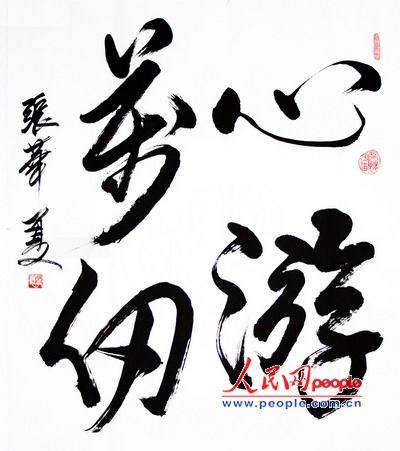 心游
萬仞
張華
人民网 people
www.people.com.cn